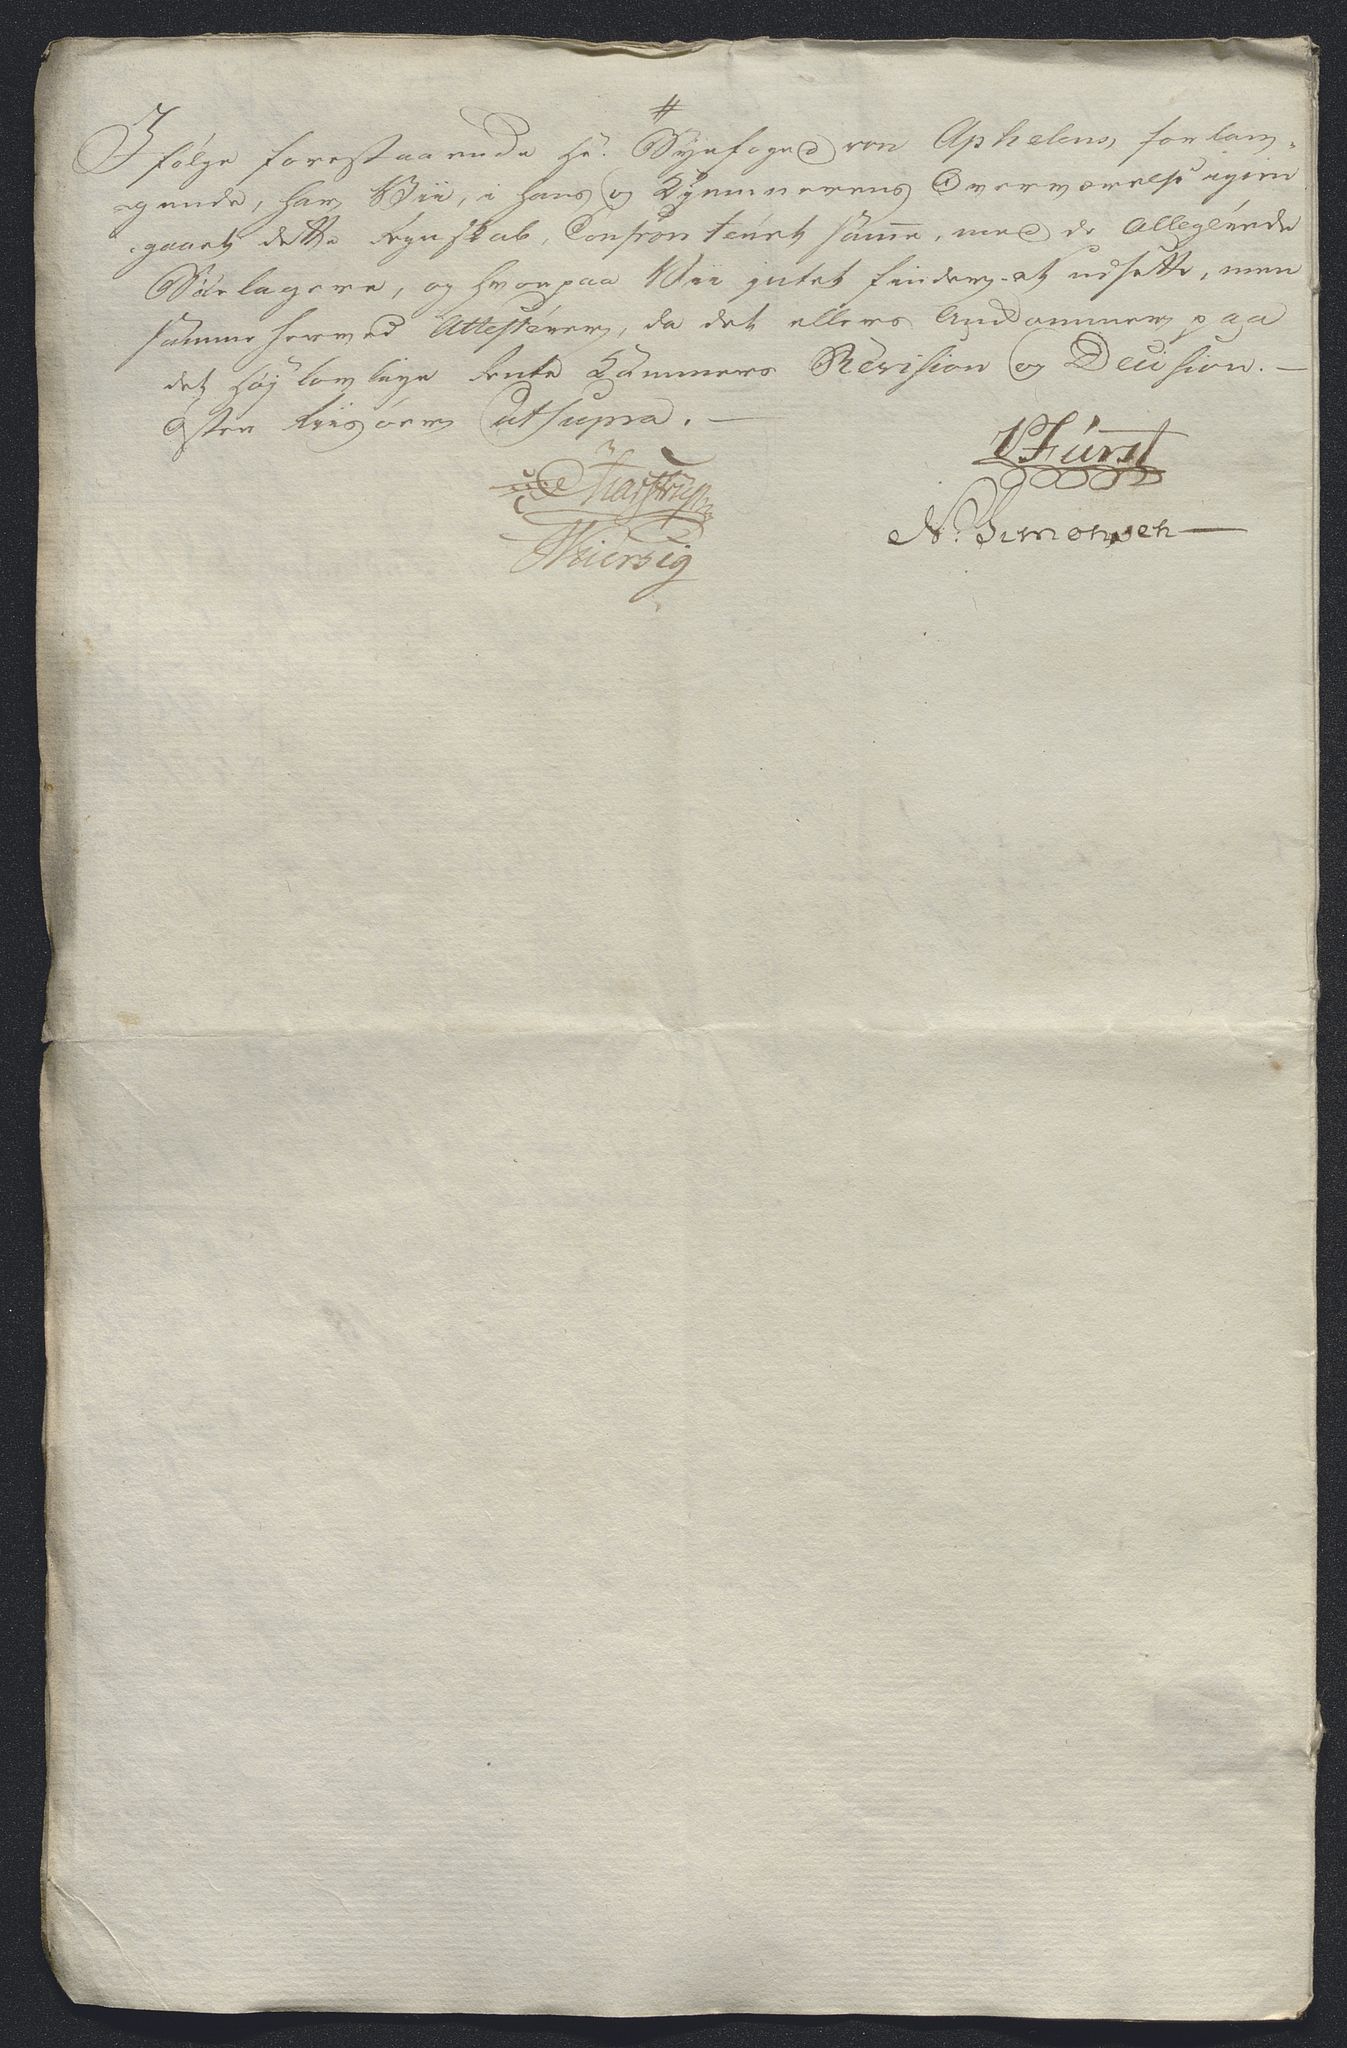 #
Ifølge forestaaende hr. Byefoged von Aphelens forlan-
gende, har Wii, i hans og Kiemnerens Overværelse igien-
gaaet dette Regnskab, Confronteret samme, med de Allegerede
Bielagere, og hvorpaa Wii intet finder at udsette, men
samme herved Attesterer, da det ellers Ankommer paa
det høj lovlige Rente Kammers Revision og Decision. —
Øster Riisøer ut supra. —
Fürst
N. Simonsen